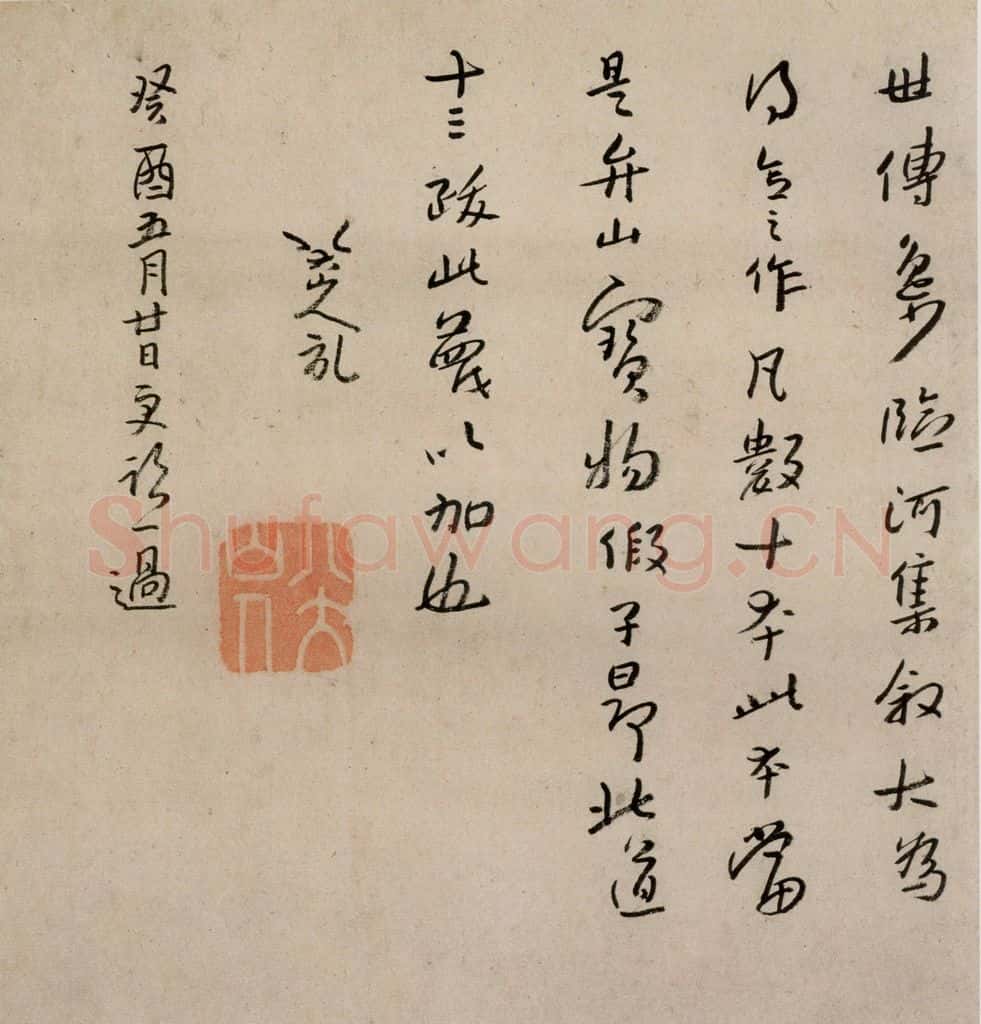 世傳臨河集叙大為
得意之作凡數十本此本當
是弁山寶物假子昂北道
十三跋此蔑以加也
八大山人記
八大山人
癸酉五月廿日一過
Shufawang.CN